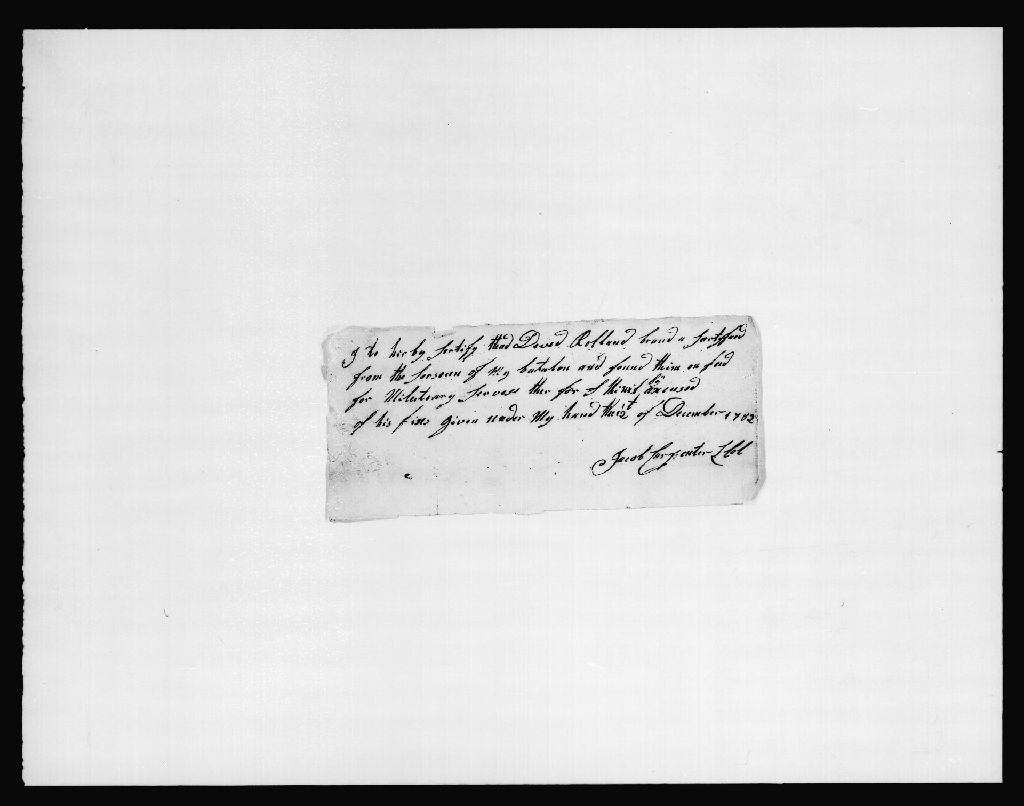 I do herby sertify thad David Ostland brand a sertifficd
from the sorscun of My batalon and found thim on find
for Militeary servess ther for I thinks him Excused
of his fins Given under My hand this 12t of December 1782
Jacob Carpenter L Col